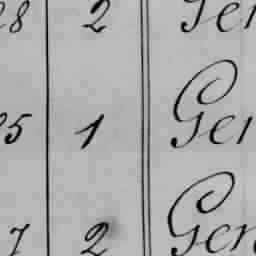 28 2 Ger
25 1 Ger
7 2 Gern